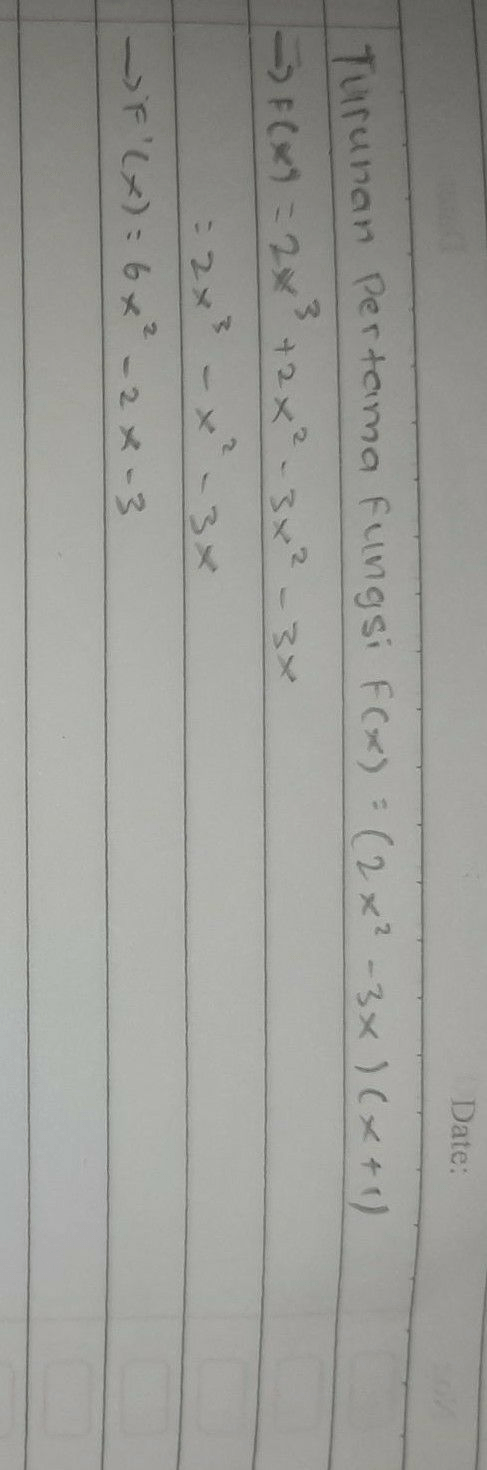 Date:
Turunan Pertama Fungsi F(x) = (2x² - 3x)(x+1)
→ F(x) = 2x³ + 2x² - 3x² - 3x
= 2x³ - x² - 3x
→ F'(x) = 6x² - 2x - 3